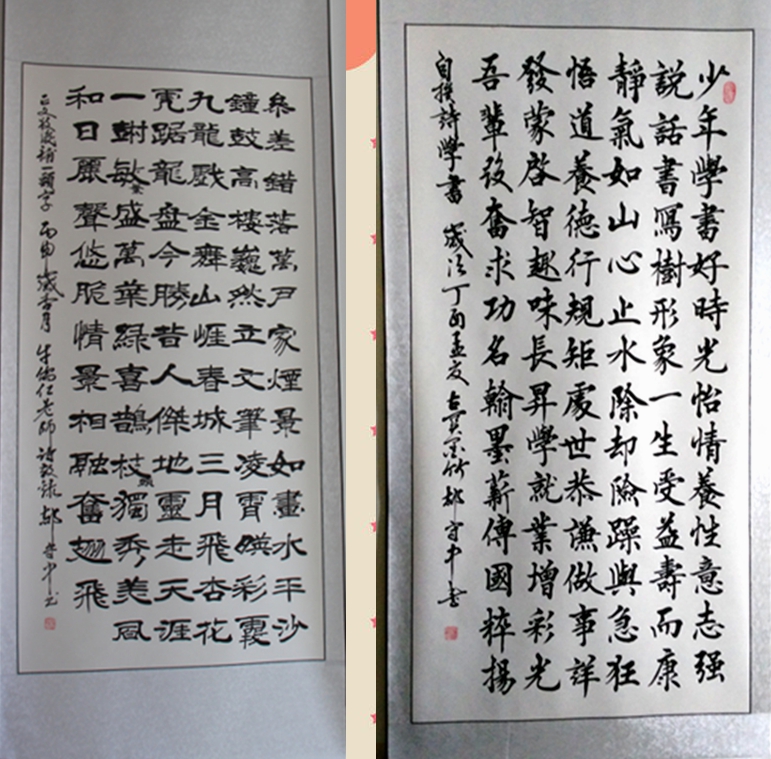 參差錯落萬戶家煙景如畫水平沙
鐘鼓高樓巍然立文筆凌霄暎彩霞
九龍戲金舞山崖春城三月飛杏花
虎踞龍盘今勝昔人傑地靈走天涯
一樹盛萬葉綠喜鵲枝頭獨秀美風
和日麗聲悠脆情景相融奮翅飛
正文枝後補一頭字 丙申歲杏月 牛儒仁老師詩敬錄 郝守中書
少年學書好時光怡情養性意志强
說話書寫樹形象一生受益壽而康
靜氣如山心止水除却險躁與急狂
悟道養德行規矩處世恭謙做事詳
發蒙啓智趣味長昇學就業增彩光
吾輩發奮求功名翰墨薪傳國粹揚
自撰詩學書 歲次丁酉孟夏 郝守中書